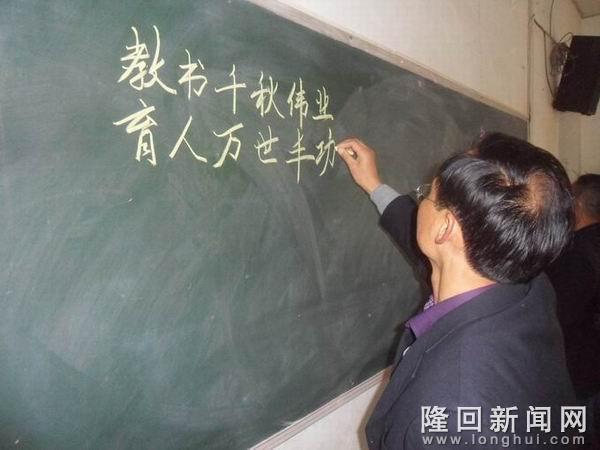 教书千秋伟业
育人万世丰功
隆回新闻网
www.longhui.com